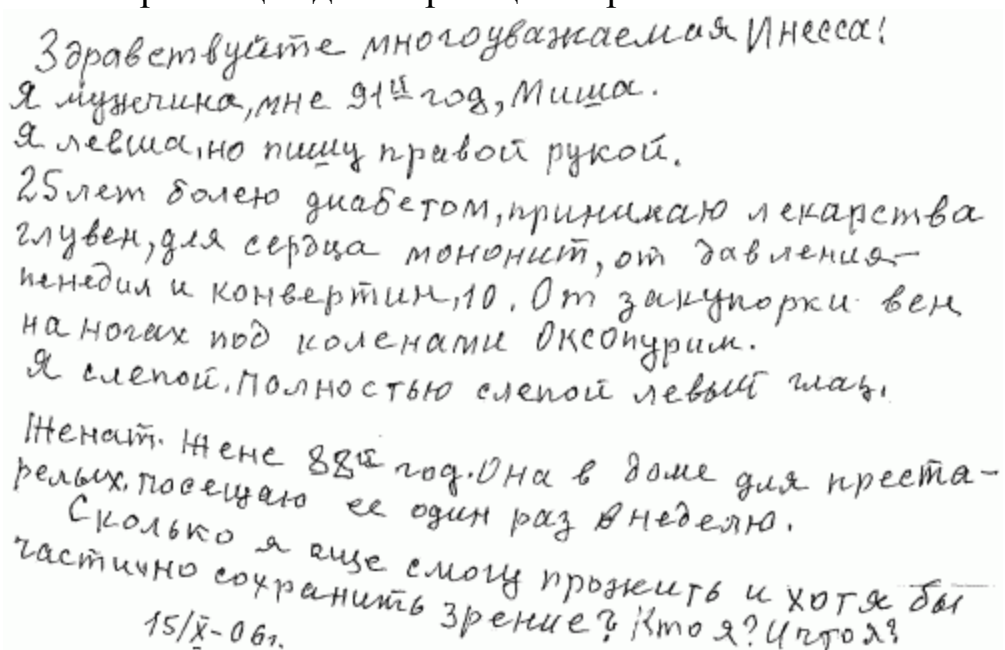 Здравствуйте многоуважаемая Инесса!
Я мужчина, мне 91й год, Миша.
Я левша, но пишу правой рукой.
25 лет болею диабетом, принимаю лекарства
глувен, для сердца мононит, от давления-
пенедил и конвертин, 10. От закупорки вен
на ногах под коленами Оксопурим.
Я слепой. Полностью слепой левый глаз.
Женат. Жене 88й год. Она в доме для преста-
релых. Посещаю ее один раз в неделю.
Сколько я еще смогу прожить и хотя бы
частично сохранить зрение? Кто я? И что я?
15/X-06г.